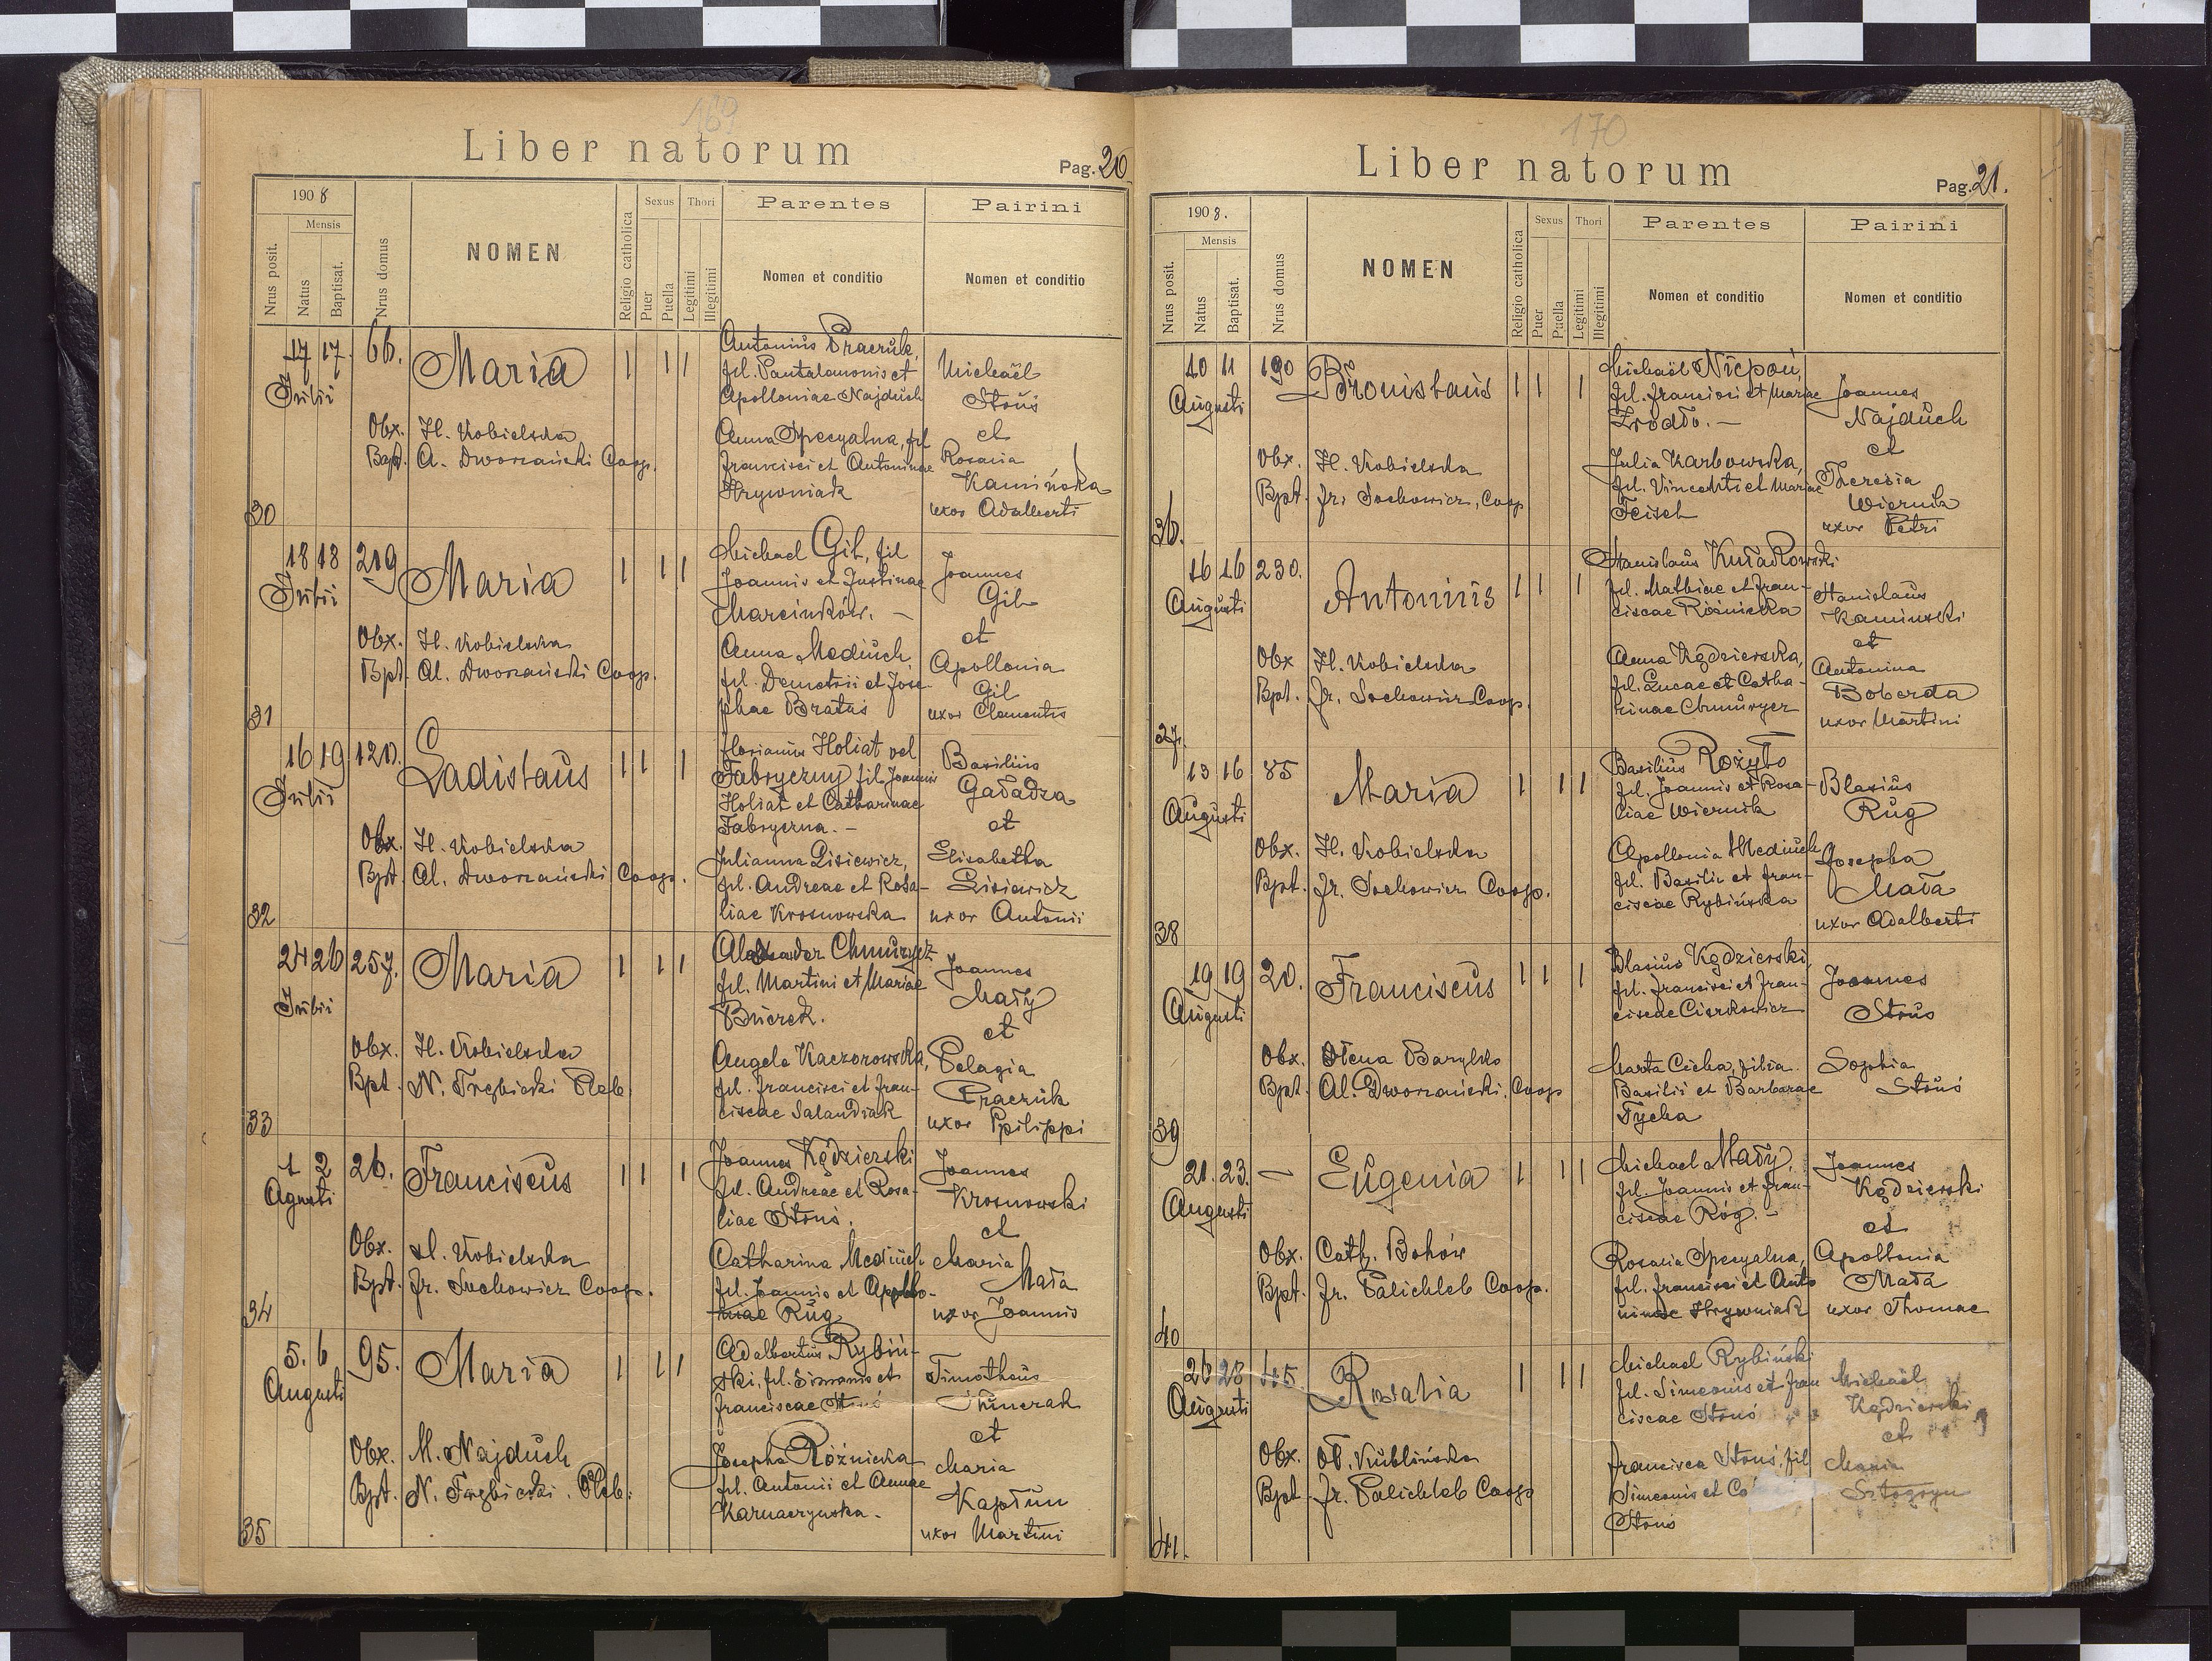 169
Liber natorum
Pag. 20
1908
Mensis
Nrus posit.
Natus
Baptisat.
Nrus domus
NOMEN
Religio catholica
Sexus
Puer
Puella
Thori
Legitimi
Illegitimi
Parentes
Nomen et conditio
Pairini
Nomen et conditio
30
17 17.
Julii
66.
Maria
Obx. H. Kobielska
Bapt. A. Dworzański Coop.
Antonius Praczuk,
fil. Pantalemonis et
Apolloniae Najduch
Anna Specyalna, fil
Francisci et Antoninae
Hrywniak
Michaël
Stouś
et
Rosalia
Kamińska
uxor Adalberti
31
18 18
Julii
219
Maria
Obx. H. Kobielska
Bpt. Al. Dworzański Coop.
Michael Gil, fil
Joannis et Justinae
Marcinków. –
Anna Mediuch
fil. Demetrii et Jose-
phae Bratuś
Joannes
Gil
et
Apollonia
Gil
uxor Clementis
32
16 19
Julii
120.
Ladislaus
Obx. H. Kobielska
Bpt. Al. Dworzański Coop.
Florianus Holiat vel
Fabryczny fil. Joannis
Holiat et Catharinae
Fabryczna. –
Julianna Lisiewicz,
fil. Andreae et Rosa-
liae Krosnowska
Basilius
Gaładza
et
Elisabetha
Lisiewicz
uxor Antonii
33
24 26
Julii
257.
Maria
Obx. H. Kobielska
Bpt. N. Trębicki Pleb.
Alexander Chmurycz
fil. Martini et Mariae
Buczek.
Angela Kaczorowska,
fil. Francisci et Fran-
ciscae Salandiak
Joannes
Mały
et
Pelagia
Praczuk
uxor Philippi
34
1 2
Agusti
26.
Franciscus
Obx. H. Kobielska
Bpt. Fr. Sochowicz Coop.
Joannes Kędzierski
fil. Andreae et Rosa-
liae Stouś.
Catharina Mediuch
fil. Joannis et Apollo-
niae Rug
Joannes
Krosnowski
et
Maria
Mała
uxor Joannis
35
5. 6
Augusti
95.
Maria
Obx. M. Najduch
Bpt. N. Trębicki. Pleb.
Adalbertus Rybiń-
ski, fil. Simonis et
Franciscae Stouś
Josepha Różnicka
fil. Antonii et Annae
Karnaczynska.
Timotheus
et
Maria
Kapłun
uxor Martini
170
Liber natorum
Pag. 21.
1908.
Mensis
Nrus posit.
Natus
Baptisat.
Nrus domus
NOMEN
Religio catholica
Sexus
Puer
Puella
Thori
Legitimi
Illegitimi
Parentes
Nomen et conditio
Pairini
Nomen et conditio
36.
10 11
Augusti
190
Bronislaus
Obx. H. Kobielska
Bpt. Fr. Sochowicz, Coop
Michaël Niepoń,
fil. Francisci et Mariae
Źrodło. –
Julia Karbowska,
fil. Vincenti et Mariae
Joannes
Najduch
et
Theresia
Wiernik
uxor Petri
37.
16 16
Augusti
230.
Antonius
Obx H. Kobielska
Bpt. Fr. Sochowicz Coop.
Stanislaus Kułakowski
fil. Mathiae et Fran-
ciscae Różnicka
Anna Kędzierska,
fil. Lucae et Catha-
rinae Chmurycz
Stanislaus
Kaminski
et
Antonina
Boberda
uxor Martini
38
13 16
Augusti
85
Maria
Obx. H. Kobielska
Bpt. Fr. Sochowicz Coop.
Basilius Rożyło
fil. Joannis et Rosa-
liae Wiernik
Apollonia Mediuch
fil. Basilii et Fran-
ciscae Rybińska
Blasius
Rug
Josepha
Mała
uxor Adalberti
39
19 19
Augusti
20.
Franciscus
Obx. Olena Barylko
Bpt. Al. Dworzański, Coop
Blasius Kędzierski,
fil. Francisci et Fran-
ciscae Cierkowicz
Marta Cicha, filia
Basilii et Barbarae
Tycha
Joannes
Stouś
Sophia
Stouś
40
21. 23.
Augusti
—
Eugenia
Obx. Cath. Bohów
Bpt. Fr. Palichleb Coop.
Michael Mały,
fil. Joannis et Fran-
ciscae Róg. –
Rosalia Specyalna,
fil. Francisci et Anto
ninae Hrywniak
Joannes
Kędzierski
et
Apollonia
Mała
uxor Thomae
41.
26 28
Augusti
Rosalia
Obx. Kublińska
Bpt. Fr. Palichleb Coop
Michael Rybiński
fil. Simeonis et Fran
ciscae Stouś
Francisca Stouś, fil
Simeonis et
Stouś
Michaël
Kędzierski
et
Maria